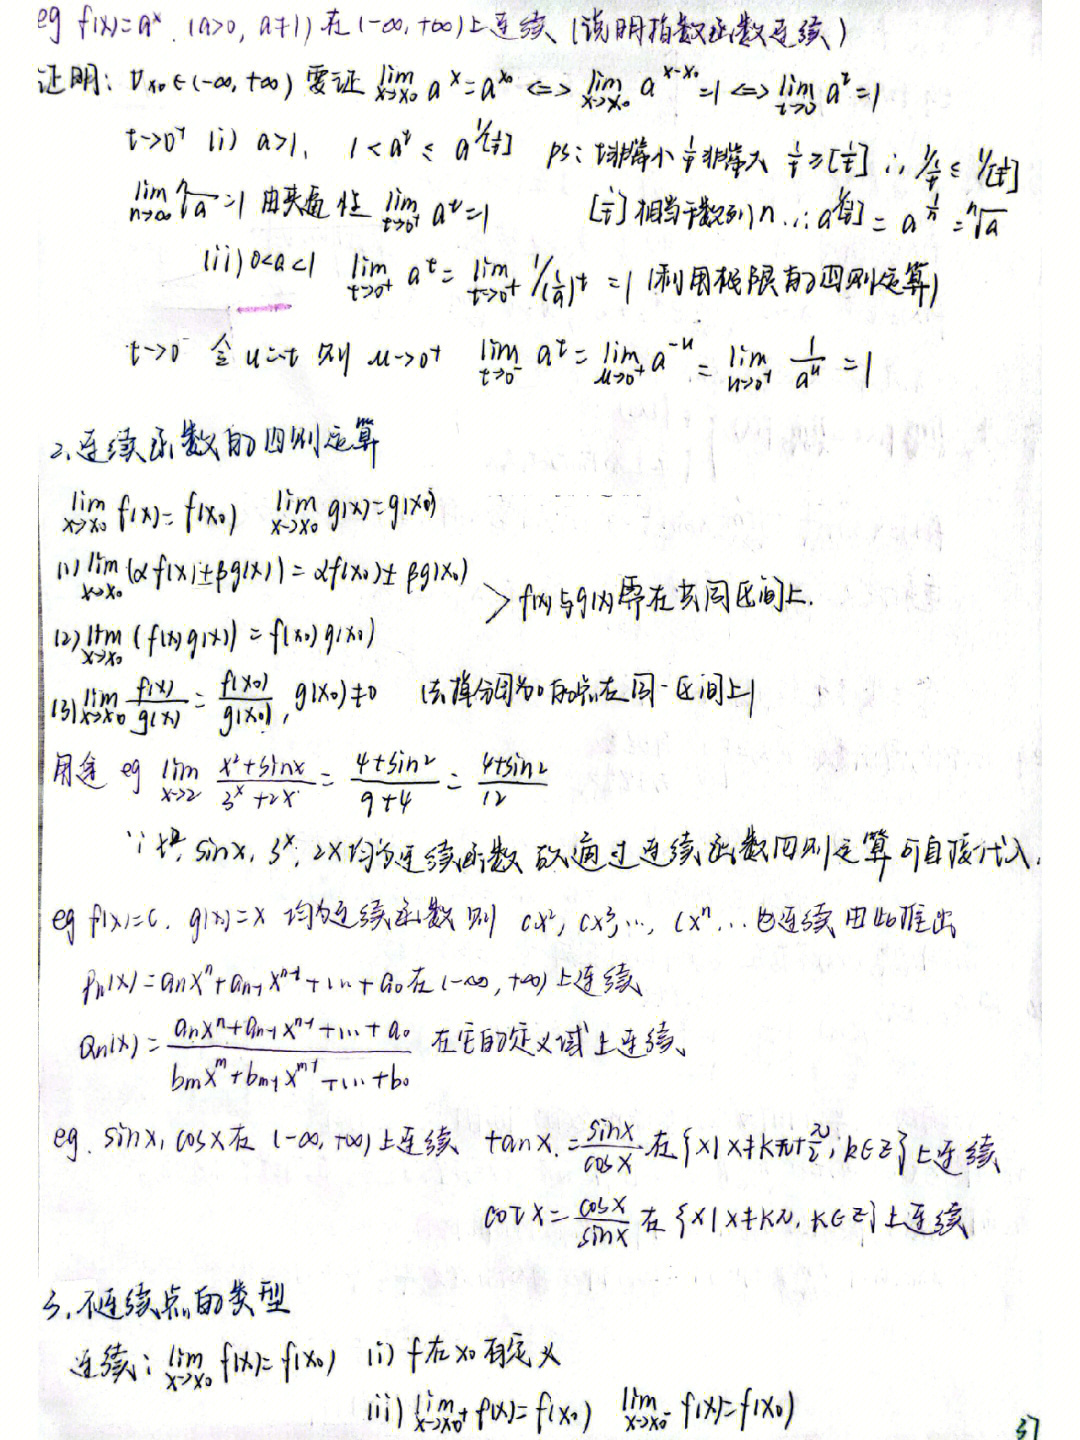 eg f(x)=a^x (a>0, a≠1) 在(-∞,+∞)上连续 (说明指数函数连续)
证明: ∀x₀∈(-∞,+∞) 要证 lim_{x→x₀} a^x=a^{x₀} <=> lim_{x→x₀} a^{x-x₀}=1 <=> lim_{t→0} a^t=1
t→0⁺ (i) a>1, 1<a^t≤a^{1/[1/t]} ps: t非常小 1/t非常大 1/t≥[1/t] ∴ 1/(1/t)≤1/[1/t]
lim_{n→∞} ⁿ√a=1 由夹逼性 lim_{t→0⁺} a^t=1 [1/t]相当于数列n ∴ a^{1/[1/t]}=a^{1/n}=ⁿ√a
(ii) 0<a<1 lim_{t→0⁺} a^t=lim_{t→0⁺} 1/(1/a)^t=1 (利用极限的四则运算)
t→0⁻ 令u=-t 则u→0⁺ lim_{t→0⁻} a^t=lim_{u→0⁺} a^{-u}=lim_{u→0⁺} 1/a^u=1
2、连续函数的四则运算
lim_{x→x₀} f(x)=f(x₀) lim_{x→x₀} g(x)=g(x₀)
(1) lim_{x→x₀} (αf(x)±βg(x))=αf(x₀)±βg(x₀)
> f(x)与g(x)要在共同区间上.
(2) lim_{x→x₀} (f(x)g(x))=f(x₀)g(x₀)
(3) lim_{x→x₀} f(x)/g(x)=f(x₀)/g(x₀), g(x₀)≠0 (去掉分母为0的点在同一区间上)
用途 eg lim_{x→2} (x²+sinx)/(3^x+2x)=(4+sin2)/(9+4)=(4+sin2)/12
∵ x², sinx, 3^x, 2x均为连续函数 故通过连续函数四则运算可直接代入.
eg f(x)=C, g(x)=x 均为连续函数 则 cx², cx³, …, cx^n … 也连续 由此推出
Pn(x)=a_n x^n+a_{n-1} x^{n-1}+…+a₀ 在(-∞,+∞)上连续
Qn(x)=(a_n x^n+a_{n-1} x^{n-1}+…+a₀)/(b_m x^m+b_{m-1} x^{m-1}+…+b₀) 在它的定义域上连续、
eg. sinx, cosx在(-∞,+∞)上连续 tanx.=sinx/cosx 在{x|x≠kπ+π/2, k∈Z}上连续
cotx=cosx/sinx 在{x|x≠kπ, k∈Z}上连续
3、不连续点的类型
连续: lim_{x→x₀} f(x)=f(x₀) (i) f在x₀有定义
(ii) lim_{x→x₀⁺} f(x)=f(x₀) lim_{x→x₀⁻} f(x)=f(x₀)
37